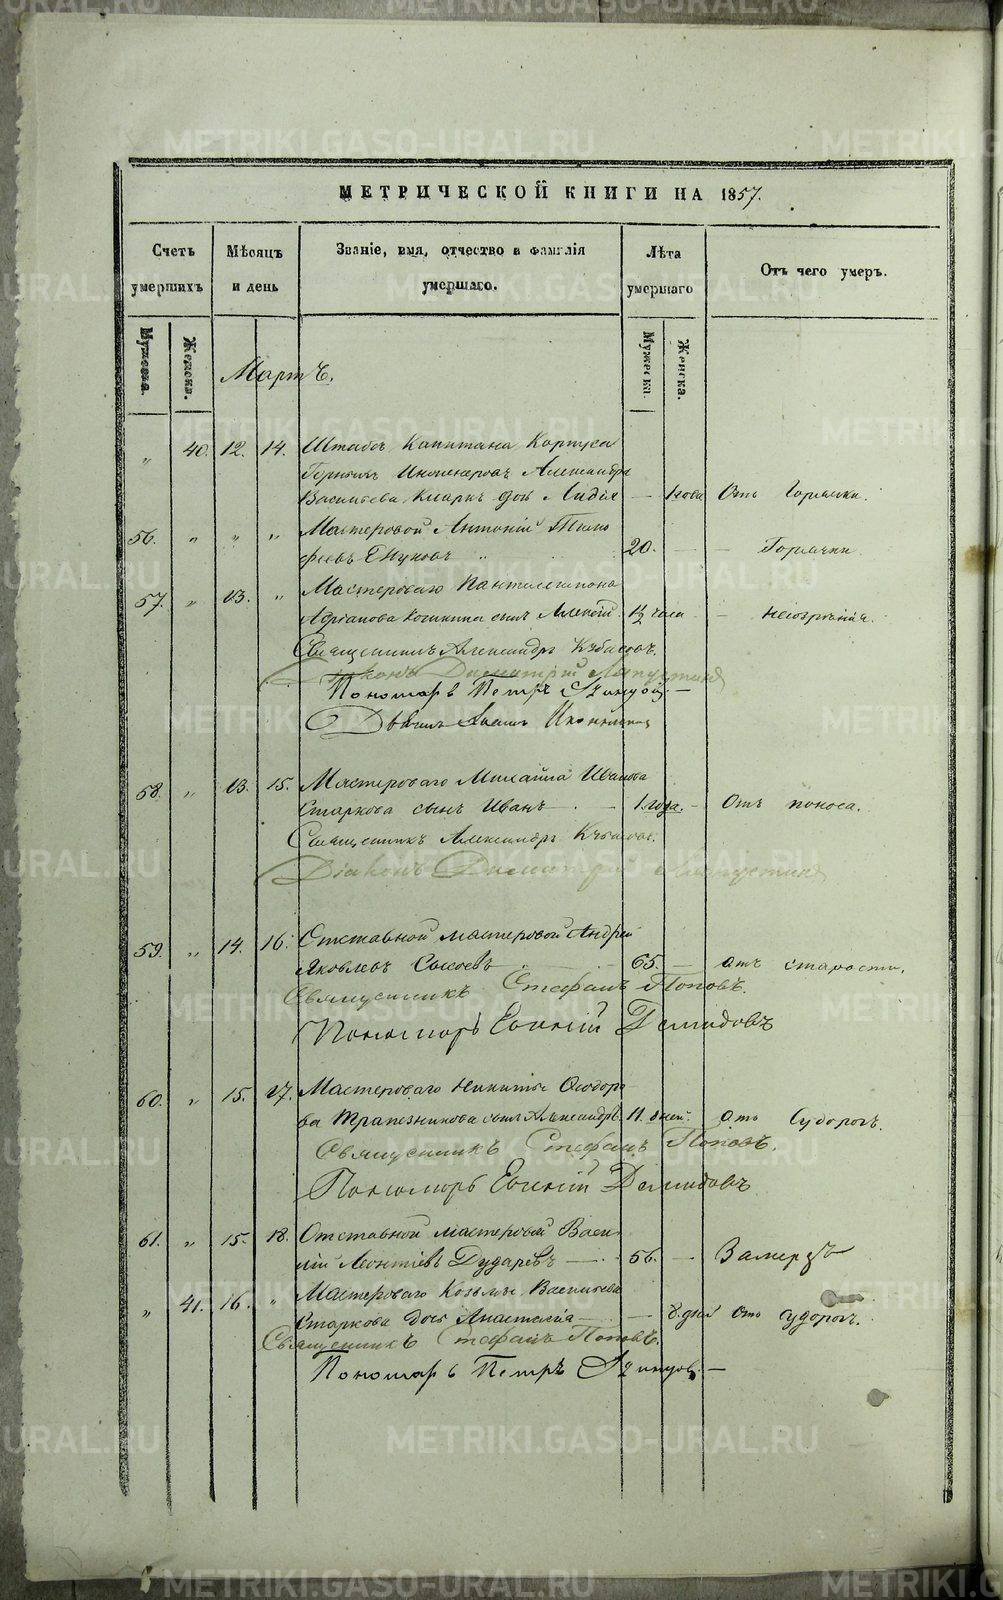 МЕТРИЧЕСКОЙ КНИГИ НА 1857.
Счетъ умершихъ
Мѣсяцъ и день
Званіе, имя, отчество и фамилія умершаго.
Лѣта умершаго
Отъ чего умеръ.
Мужеска.
Женска.
Мужеска.
Женска.
Мартъ.
„ 40. 12. 14. Штабсъ Капитана Корпуса
Горныхъ Инженеровъ Александра
Васильева дочь Лидія — 1 года Отъ Горячки.
56. „ „ „ Мастеровой Антоній Тимо
феевъ 20. — — Горячки
57. „ 13. „ Мастероваго Пантелеимона
сынъ Алексій —
Священникъ Александръ
Діаконъ Димитрій
Пономарь Петръ
58. „ 13. 15. Мастероваго Михаила Иванова
Старкова сынъ Иванъ — 1 года. — Отъ поноса.
Священникъ Александръ
Діаконъ Димитрій
59. „ 14. 16. Отставной мастеровой Андрей
Яковлевъ Сысоевъ 65. — отъ старости.
Священникъ Стефанъ Поповъ.
Пономарь Евгеній Демидовъ
60. „ 15. 17. Мастероваго Никиты Ѳеодоро
ва Трапезникова сынъ Александръ. 11. дней. отъ Судорогъ.
Священникъ Стефанъ Поповъ.
Пономарь Евгеній Демидовъ
61. „ 15. 18. Отставной мастеровой Васи
лій Леонтіевъ Дударевъ — 56. — Замерзъ
„ 41. 16. „ Мастероваго Козьмы Васильева
Старкова дочь Анастасія — — 8. дней отъ судорогъ.
Священникъ Стефанъ Поповъ.
Пономарь Петръ
METRIKI.GASO-URAL.RU